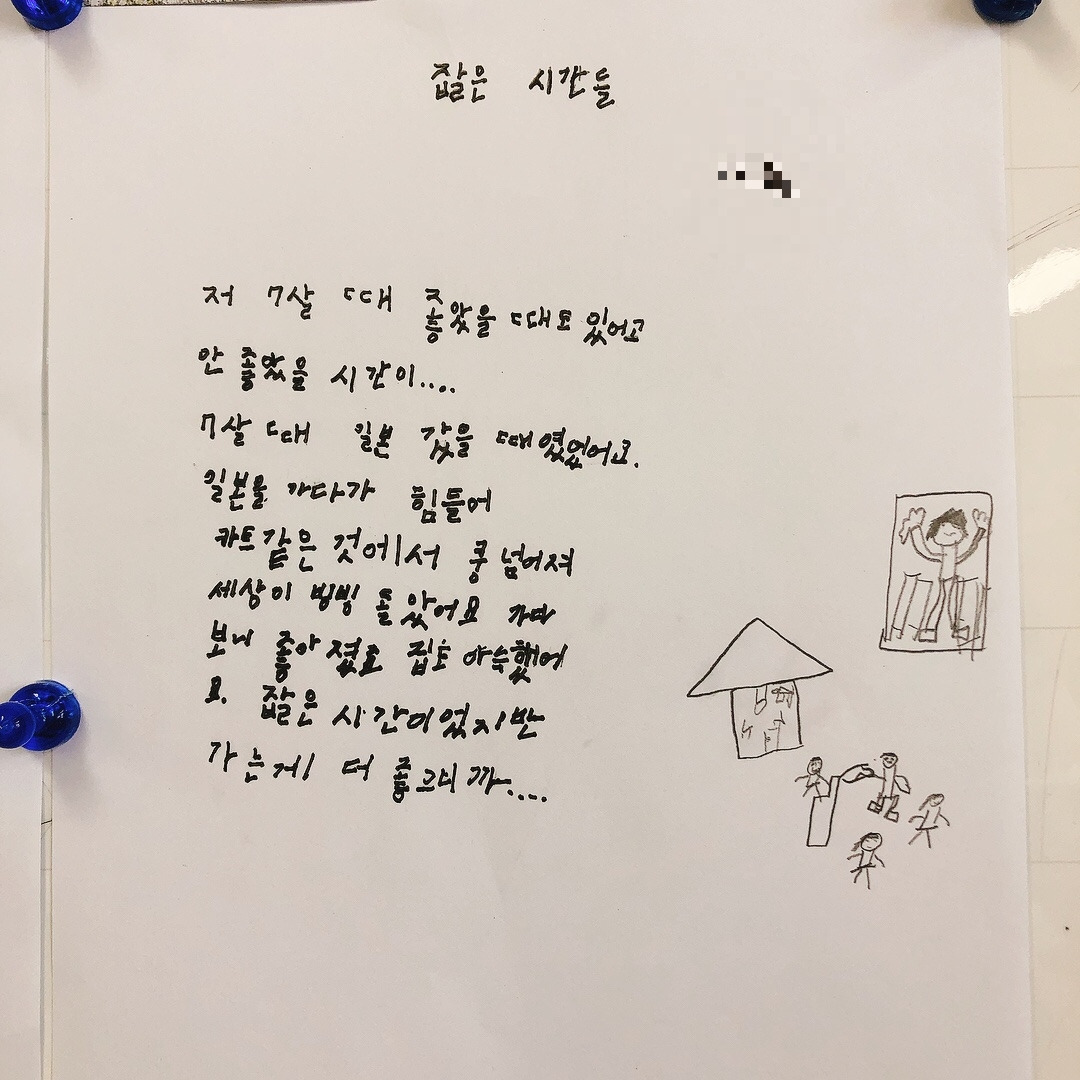 잛은 시간들
저 7살 때 좋았을 때도 있어고
안 좋았을 시간이....
7살 때 일본 갔을 때였었어요.
일본을 가다가 힘들어
카트같은 것에서 쿵 넘어져
세상이 빙빙 돌았어요 가다
보니 좋아졌고 집도 아숙했어
요. 잛은 시간이었지만
가는게 더 좋그니까....